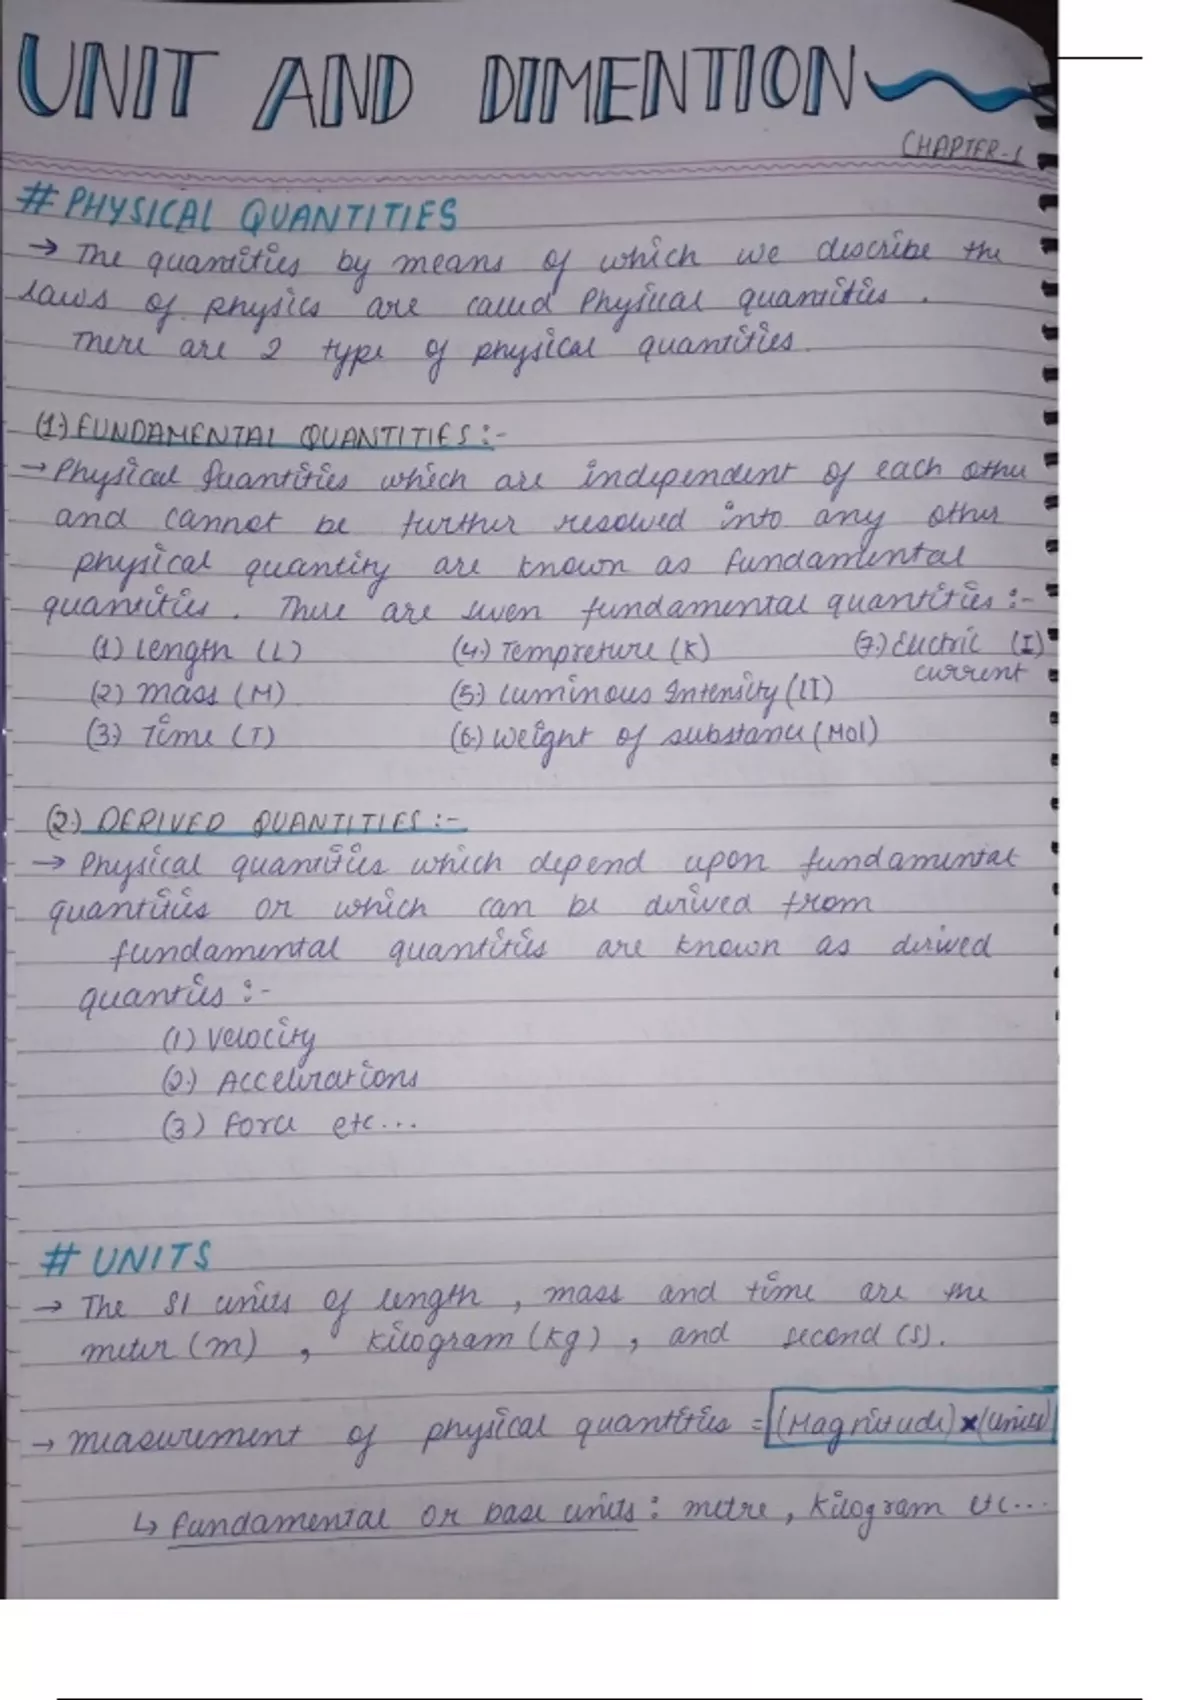 UNIT AND DIMENTION
CHAPTER-1
# PHYSICAL QUANTITIES
→ The quantities by means of which we describe the
laws of physics are called Physical quantities.
There are 2 type of physical quantities.
(1.) FUNDAMENTAL QUANTITIES :-
→ Physical Quantities which are independent of each other
and cannot be further resolved into any other
physical quantity are known as fundamental
quantities. There are seven fundamental quantities :-
(1) Length (L) (4.) Tempreture (K) (7.) Electric (I)
current
(2) Mass (M) (5.) Luminous Intensity (LI)
(3) Time (T) (6.) Weight of substance (Mol)
(2.) DERIVED QUANTITIES :-
→ Physical quantities which depend upon fundamental
quantities or which can be derived from
fundamental quantities are known as derived
quanties :-
(1) Velocity
(2.) Accelerations
(3) Force etc...
# UNITS
→ The SI units of length, mass and time are the
meter (m), Kilogram (kg), and second (s).
→ measurement of physical quantities = (Magnitude) x (Units)
↳ fundamental or base units : metre, Kilogram etc...